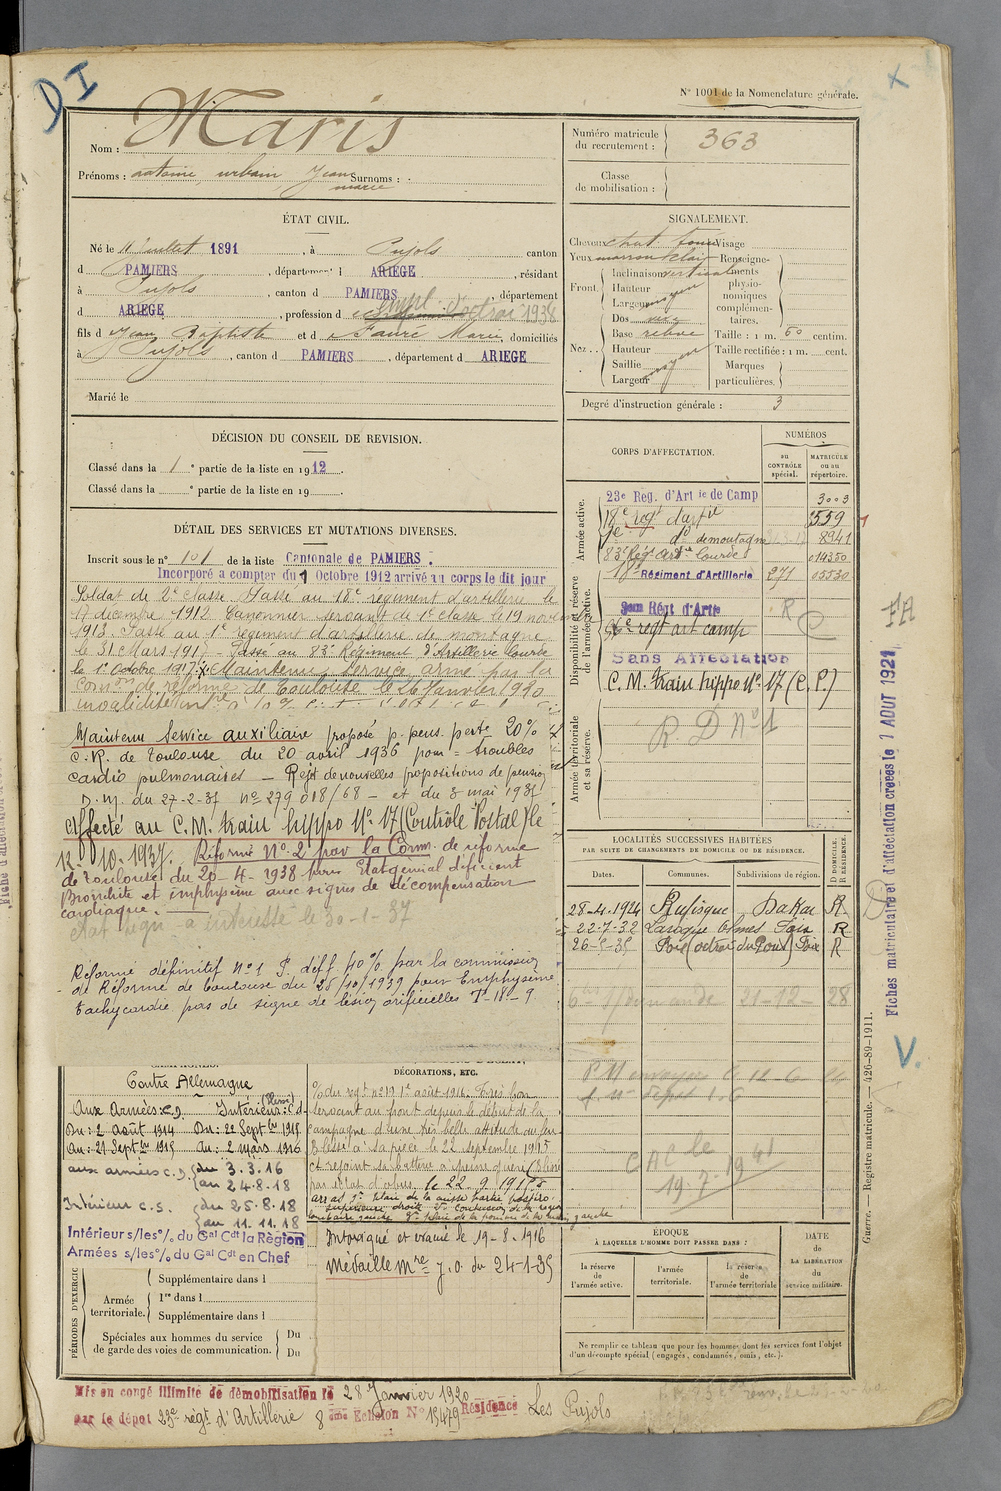 D I
N° 1001 de la Nomenclature générale.
Nom : Maris
Prénoms : antoine, urbain Jean marie Surnoms :
Numéro matricule du recrutement : 363
Classe de mobilisation :
ÉTAT CIVIL.
Né le 10 Juillet 1891, à Pujols canton
d PAMIERS, département d ARIEGE, résidant
à Pujols, canton d PAMIERS, département
d ARIEGE, profession d empl. d'octroi 1938
fils d Jean Baptiste et d Faure Marie, domiciliés
à Pujols, canton d PAMIERS, département d ARIEGE
Marié le
SIGNALEMENT.
Cheveux chat foncé Visage
Yeux marron clair Renseignements physionomiques complémentaires.
Front. Inclinaison verticale
Hauteur
Largeur moyen
Nez.. Dos
Base relevé Taille : 1 m. 60 centim.
Hauteur Taille rectifiée : 1 m. cent.
Saillie Marques
Largeur moyen particulières.
Degré d'instruction générale : 3
DÉCISION DU CONSEIL DE REVISION.
Classé dans la 1e partie de la liste en 1912.
Classé dans la e partie de la liste en 19
DÉTAIL DES SERVICES ET MUTATIONS DIVERSES.
Inscrit sous le n° 101 de la liste Cantonale de PAMIERS.
Incorporé a compter du 1 Octobre 1912 arrivé au corps le dit jour
Soldat de 2e classe. Passé au 18e régiment d'artillerie le
17 décembre 1912. Canonnier servant de 1e classe le 19 novembre
1913. Passé au 1e régiment d'artillerie de montagne
le 31 Mars 1917 - Passé au 83e Régiment d'Artillerie Lourde
le 1er Octobre 1917. x Maintenu service armé par la
Comon de réforme de Toulouse le 26 Janvier 1920
Maintenu Service auxiliaire proposé p. pens. perte 20%
C.R. de Toulouse du 20 avril 1936 pour = troubles
cardio pulmonaires - Rejet de nouvelles propositions de pension
D.M. du 27-2-37 n° 279018/68 - et du 3 mai 1937
Affecté au C.M. train hippo N° 17 (Contrôle Postal) le
12-10-1937. Réformé N° 2 par la Comm. de réforme
de Toulouse du 20-4-1938 pour Etat général déficient
Bronchite et emphysème avec signes de décompensation
cardiaque.
a intéressé le 30-1-37
Réformé définitif N° 1 P. déff 40% par la commission
de Réforme de Toulouse du 25/10/1939 pour Emphysème
tachycardie pas de signe de lésion orificielles T-18-9
CORPS D'AFFECTATION.
NUMÉROS
AU CONTRÔLE spécial.
MATRICULE ou au répertoire.
Armée active.
23e Reg. d'Artie de Camp 3003
18e regt d'artie 2559
1e do de montagne 8941
83e Régt Artie Lourde 014350
Disponibilité et réserve de l'armée active.
18e Régiment d'Artillerie 271 05530
Régt d'Artie R
regt art camp
Sans Affectation
C.M. train hippo N° 17 (C.P.)
Armée territoriale et sa réserve.
R. D N° 1
LOCALITÉS SUCCESSIVES HABITÉES
PAR SUITE DE CHANGEMENTS DE DOMICILE OU DE RÉSIDENCE.
Dates. Communes. Subdivisions de région. D DOMICILE. R RÉSIDENCE.
28-4-1924 Rufisque Dakar R.
22-7-32 Laroque Olmes Foix R
26-5-35 Foix (octroi du Pont) Foix R
21-12-28
CAC le
19.7.1941
Contre Allemagne
Aux Armées: C.D. Intérieur: C.S. (Blessé)
Du: 2 Août 1914 Du: 22 Septbre 1915
Au: 21 Septbre 1915 Au: 2 mars 1916
aux armées C.D. du 3.3.16
au 24.8.18
Intérieur C.S. du 25.8.18
au 11.11.18
Intérieur s/les°/. du Gal Cdt la Région
Armées s/les°/. du Gal Cdt en Chef
DÉCORATIONS, ETC.
°/. du regt n° 19 1er août 1916. Très bon
servant au front depuis le début de la
campagne d'une très belle attitude au feu
Blessé à sa pièce le 22 septembre 1915
et rejoint sa batterie à peine guéri. Blessé
par éclat d'obus le 22.9.1915
Intoxiqué et évacué le 19-8-1916
Médaille Mre J.O. du 24-1-35
PÉRIODES D'EXERCICE
Supplémentaire dans l
Armée territoriale. 1re dans l
Supplémentaire dans l
Spéciales aux hommes du service de garde des voies de communication. Du
Du
ÉPOQUE
À LAQUELLE L'HOMME DOIT PASSER DANS :
la réserve de l'armée active.
l'armée territoriale.
la réserve de l'armée territoriale
DATE de LA LIBÉRATION du service militaire.
Ne remplir ce tableau que pour les hommes dont les services font l'objet
d'un décompte spécial (engagés, condamnés, omis, etc.).
Mis en congé illimité de démobilisation le 28 Janvier 1920
par le dépôt 23e régt d'Artillerie 8 ème Echelon N° 15479 Résidence Les Pujols
Fiches matriculaire et d'affectation créées le 1 AOUT 1921
FA
V.
Guerre. — Registre matricule. — 426-89-1911.